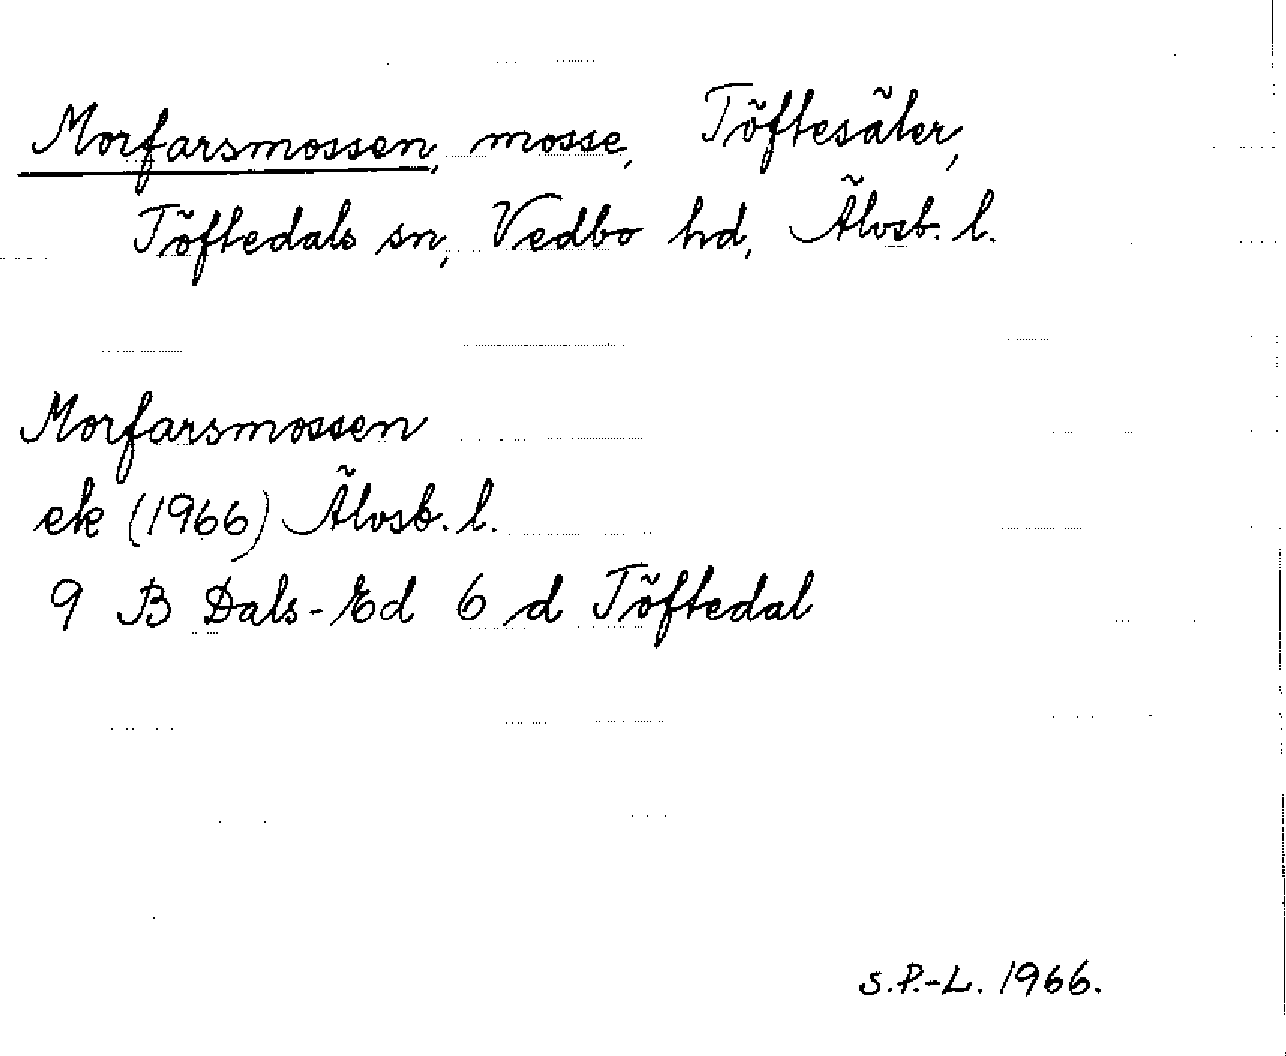 Morfarsmossen, mosse, Töftesäter,
Töftedals sn, Vedbo hd, Älvsb. l.
Morfarsmossen
ek (1966) Älvsb. l.
9 B Dals-Ed 6 d Töftedal
S.P.-L. 1966.